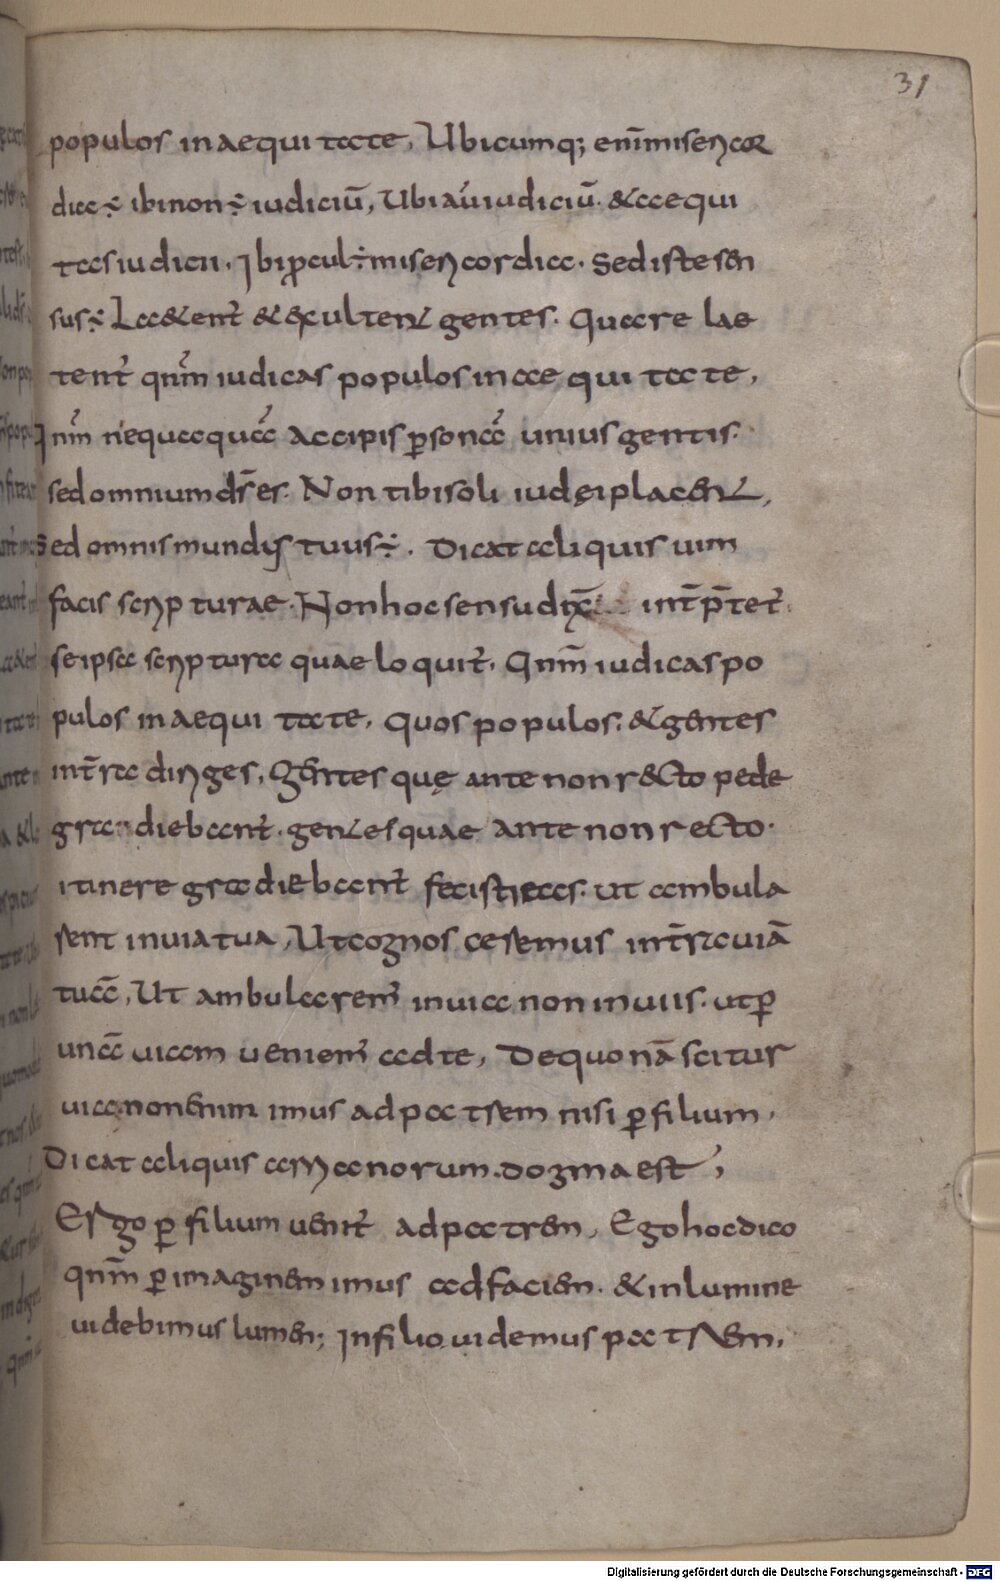 31
populos in aequitate, Ubicumq; enī misericor
dia ÷ ibi non ÷ iudiciū, Ubi aū iudiciū. & aequi
tas iudicii. Ibi ꝓcul ÷ misericordia. Sed iste sen
sus ÷ Laetent̄ & exultent gentes. Quare lae
tent̄ qnm̄ iudicas populos in aequitate,
nm̄ nequaquā accipis ꝑsonā unius gentis.
sed omnium dr̄ es. Non tibi soli iudęi placent,
Sed omnis mundus tuus ÷. Dicat aliquis uim
facis scripturae. Non hoc sensu dix̄ int̄p̄tet̄
se ipsa scriptura quae loquit̄. Qnm̄ iudicas po
pulos in aequitate. Quos populos. & gentes
int̄ra diriges. Gentes quę ante non recto pede
gradiebant̄. gentes quae ante non recto.
itinere gradiebant̄ fecisti eas. ut ambula
rent in uia tua, Ut cognosceremus int̄ra uiā
tuā, Ut ambularem̄ in uia non in uiis. ut ꝑ
unā uiam ueniem̄ ad te, De quo nā scitur
uia non enim imus ad patrem nisi ꝑ filium.
Dicat aliquis arrianorum dogma est,
Ergo ꝑ filium uenit̄ ad patrem, Ego hoc dico
qnm̄ ꝑ imaginem imus ad faciem. & in lumine
uidebimus lumen; In filio uidemus patrem,
Digitalisierung gefördert durch die Deutsche Forschungsgemeinschaft - DFG